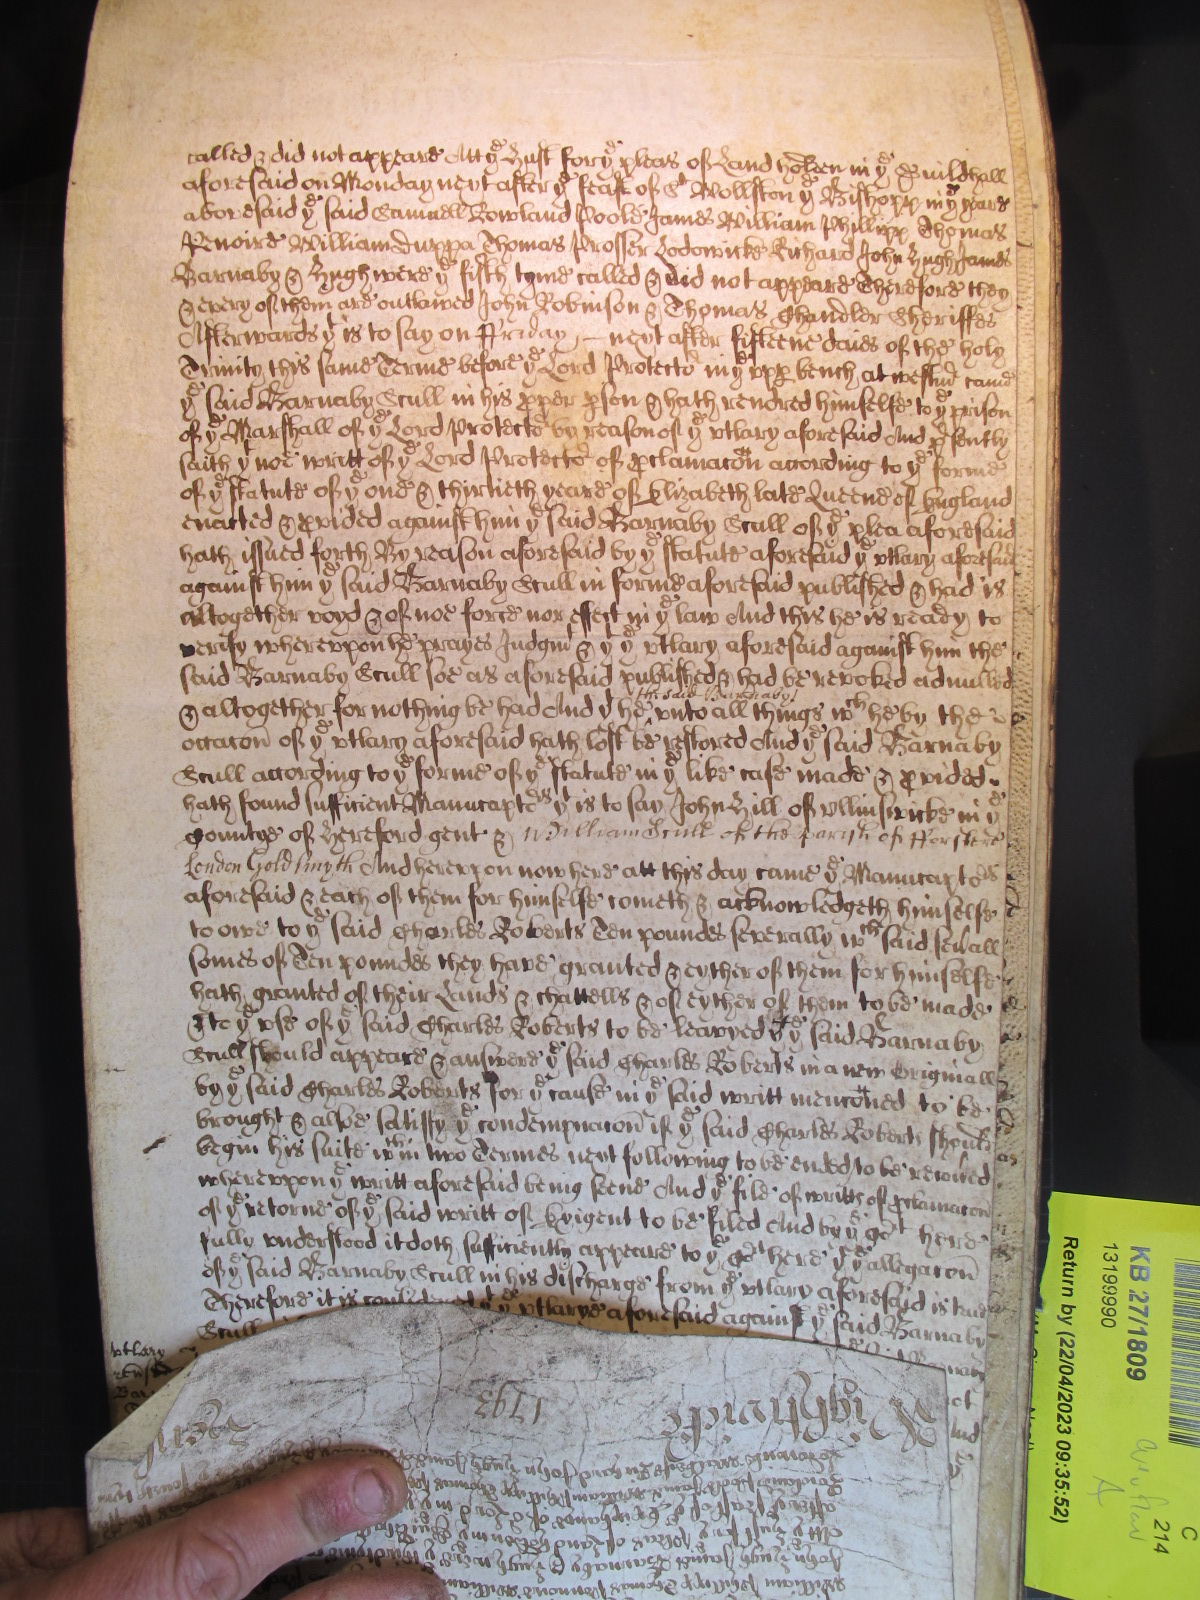 called & did not appeare Att ye Hust for ye pleas of Land holden in ye Guildhall
aforesaid on Monday next after ye feast of St Wollston ye Bishopp in ye yeare
abovesaid ye said Samuell Rowland Poole James William Phillipp Thomas
Penoire William Duppa Thomas Prosser Lodowicke Richard John Hugh James
Barnaby & Hugh were ye fifth tyme called & did not appeare Therefore they
& every of them are outlawed John Robinson & Thomas Chandler Sheriffes
Afterwards yt is to say on Friday next after fifteene daies of the holy
Trinity this same Terme before ye Lord Protector in ye vpp bench at westmr came
ye said Barnaby Scull in his pper pson & hath rendred himselfe to ye prison
of ye Marshall of ye Lord Protector by reason of ye vtlary aforesaid And psently
saith yt noe writt of ye Lord Protector of pclamacon according to ye forme
of ye statute of ye one & thirtieth yeare of Elizabeth late Queene of England
enacted & pvided against him ye said Barnaby Scull of ye plea aforesaid
hath issued forth By reason aforesaid by ye statute aforesaid ye vtlary aforesaid
against him ye said Barnaby Scull in forme aforesaid published & had is
altogether voyd & of noe force nor effect in ye law And this he is ready to
verify wherevpon he prayes Judgmt & yt ye vtlary aforesaid against him the
said Barnaby Scull soe as aforesaid published & had be revoked adnulled
& altogether for nothing be had And yt he (the said Barnaby) vnto all things wch he by the
occacon of ye vtlary aforesaid hath lost be restored And ye said Barnaby
Scull according to ye forme of ye statute in ye like case made & pvided
hath found sufficient Manucaptors yt is to say John Hill of Ullinswicke in ye
Countye of Hereford gent & William Scull of the parish of
London Goldsmyth And herevpon now here att this day came ye Manucaptors
aforesaid & each of them for himselfe cometh & acknowledgeth himselfe
to owe to ye said Charles Roberts Ten poundes severally wch said sevall
somes of Ten poundes they have granted & eyther of them for himselfe
hath granted of their Lands & chattells & of eyther of them to be made
& to ye vse of ye said Charles Roberts to be leavyed yt ye said Barnaby
Scull should appeare & answere ye said Charles Roberts in a new Originall
by ye said Charles Roberts for ye cause in ye said writt menconed to be
brought & alsoe satisfy ye condempnacon if ye said Charles Roberts should
begin his suite wthin two Termes next following to be ended to be received
wherevpon ye writt aforesaid being seene And ye file of writts of pclamacon
of ye retorne of ye said writt of Exigent to be filed And by ye Cot here
fully vnderstood it doth sufficiently appeare to ye Cot here yt ye allegacon
of ye said Barnaby Scull in his discharge from ye vtlary aforesaid is true
Therefore it is considered yt ye vtlarye aforesaid against ye said Barnaby
Scull
vtlary
1793
KB 27/1809
13199990
Return by (22/04/2023 09:35:52)
C
214
A